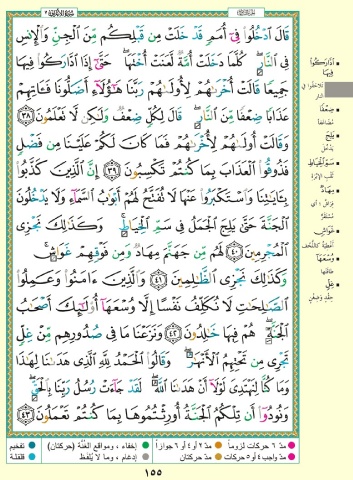 قَالَ ٱدْخُلُوا۟ فِىٓ أُمَمٍ قَدْ خَلَتْ مِن قَبْلِكُم مِّنَ ٱلْجِنِّ وَٱلْإِنسِ
فِى ٱلنَّارِ ۖ كُلَّمَا دَخَلَتْ أُمَّةٌ لَّعَنَتْ أُخْتَهَا ۖ حَتَّىٰٓ إِذَا ٱدَّارَكُوا۟ فِيهَا
جَمِيعًا قَالَتْ أُخْرَىٰهُمْ لِأُولَىٰهُمْ رَبَّنَا هَـٰٓؤُلَآءِ أَضَلُّونَا فَـَٔاتِهِمْ
عَذَابًا ضِعْفًا مِّنَ ٱلنَّارِ ۖ قَالَ لِكُلٍّ ضِعْفٌ وَلَـٰكِن لَّا تَعْلَمُونَ ٣٨
وَقَالَتْ أُولَىٰهُمْ لِأُخْرَىٰهُمْ فَمَا كَانَ لَكُمْ عَلَيْنَا مِن فَضْلٍ
فَذُوقُوا۟ ٱلْعَذَابَ بِمَا كُنتُمْ تَكْسِبُونَ ٣٩ إِنَّ ٱلَّذِينَ كَذَّبُوا۟
بِـَٔايَـٰتِنَا وَٱسْتَكْبَرُوا۟ عَنْهَا لَا تُفَتَّحُ لَهُمْ أَبْوَٰبُ ٱلسَّمَآءِ وَلَا يَدْخُلُونَ
ٱلْجَنَّةَ حَتَّىٰ يَلِجَ ٱلْجَمَلُ فِى سَمِّ ٱلْخِيَاطِ ۚ وَكَذَٰلِكَ نَجْزِى
ٱلْمُجْرِمِينَ ٤٠ لَهُم مِّن جَهَنَّمَ مِهَادٌ وَمِن فَوْقِهِمْ غَوَاشٍ ۚ
وَكَذَٰلِكَ نَجْزِى ٱلظَّـٰلِمِينَ ٤١ وَٱلَّذِينَ ءَامَنُوا۟ وَعَمِلُوا۟
ٱلصَّـٰلِحَـٰتِ لَا نُكَلِّفُ نَفْسًا إِلَّا وُسْعَهَآ أُو۟لَـٰٓئِكَ أَصْحَـٰبُ
ٱلْجَنَّةِ ۖ هُمْ فِيهَا خَـٰلِدُونَ ٤٢ وَنَزَعْنَا مَا فِى صُدُورِهِم مِّنْ غِلٍّ
تَجْرِى مِن تَحْتِهِمُ ٱلْأَنْهَـٰرُ ۖ وَقَالُوا۟ ٱلْحَمْدُ لِلَّهِ ٱلَّذِى هَدَىٰنَا لِهَـٰذَا
وَمَا كُنَّا لِنَهْتَدِىَ لَوْلَآ أَنْ هَدَىٰنَا ٱللَّهُ ۖ لَقَدْ جَآءَتْ رُسُلُ رَبِّنَا بِٱلْحَقِّ ۖ
وَنُودُوٓا۟ أَن تِلْكُمُ ٱلْجَنَّةُ أُورِثْتُمُوهَا بِمَا كُنتُمْ تَعْمَلُونَ ٤٣
ادَّارَكُوا فِيهَا
تلاحقوا في النار
ضِعْفًا
مضاعفًا
يَلِجَ
يدخل
سَمِّ الْخِيَاطِ
ثقب الإبرة
مِهَادٌ
فراش ، أي مستقر
غَوَاشٍ
أغطية كاللحف
وُسْعَهَا
طاقتها
غِلٍّ
حقد وضغن
مدّ ٦ حركات لزوماً مدّ ٢ أو ٤ أو ٦ جوازاً إخفاء، ومواقع الغُنَّة (حركتان) تفخيم
مدّ واجب ٤ أو ٥ حركات مدّ حركتان إدغام، وما لا يُلفَظ قلقلة
١٥٥